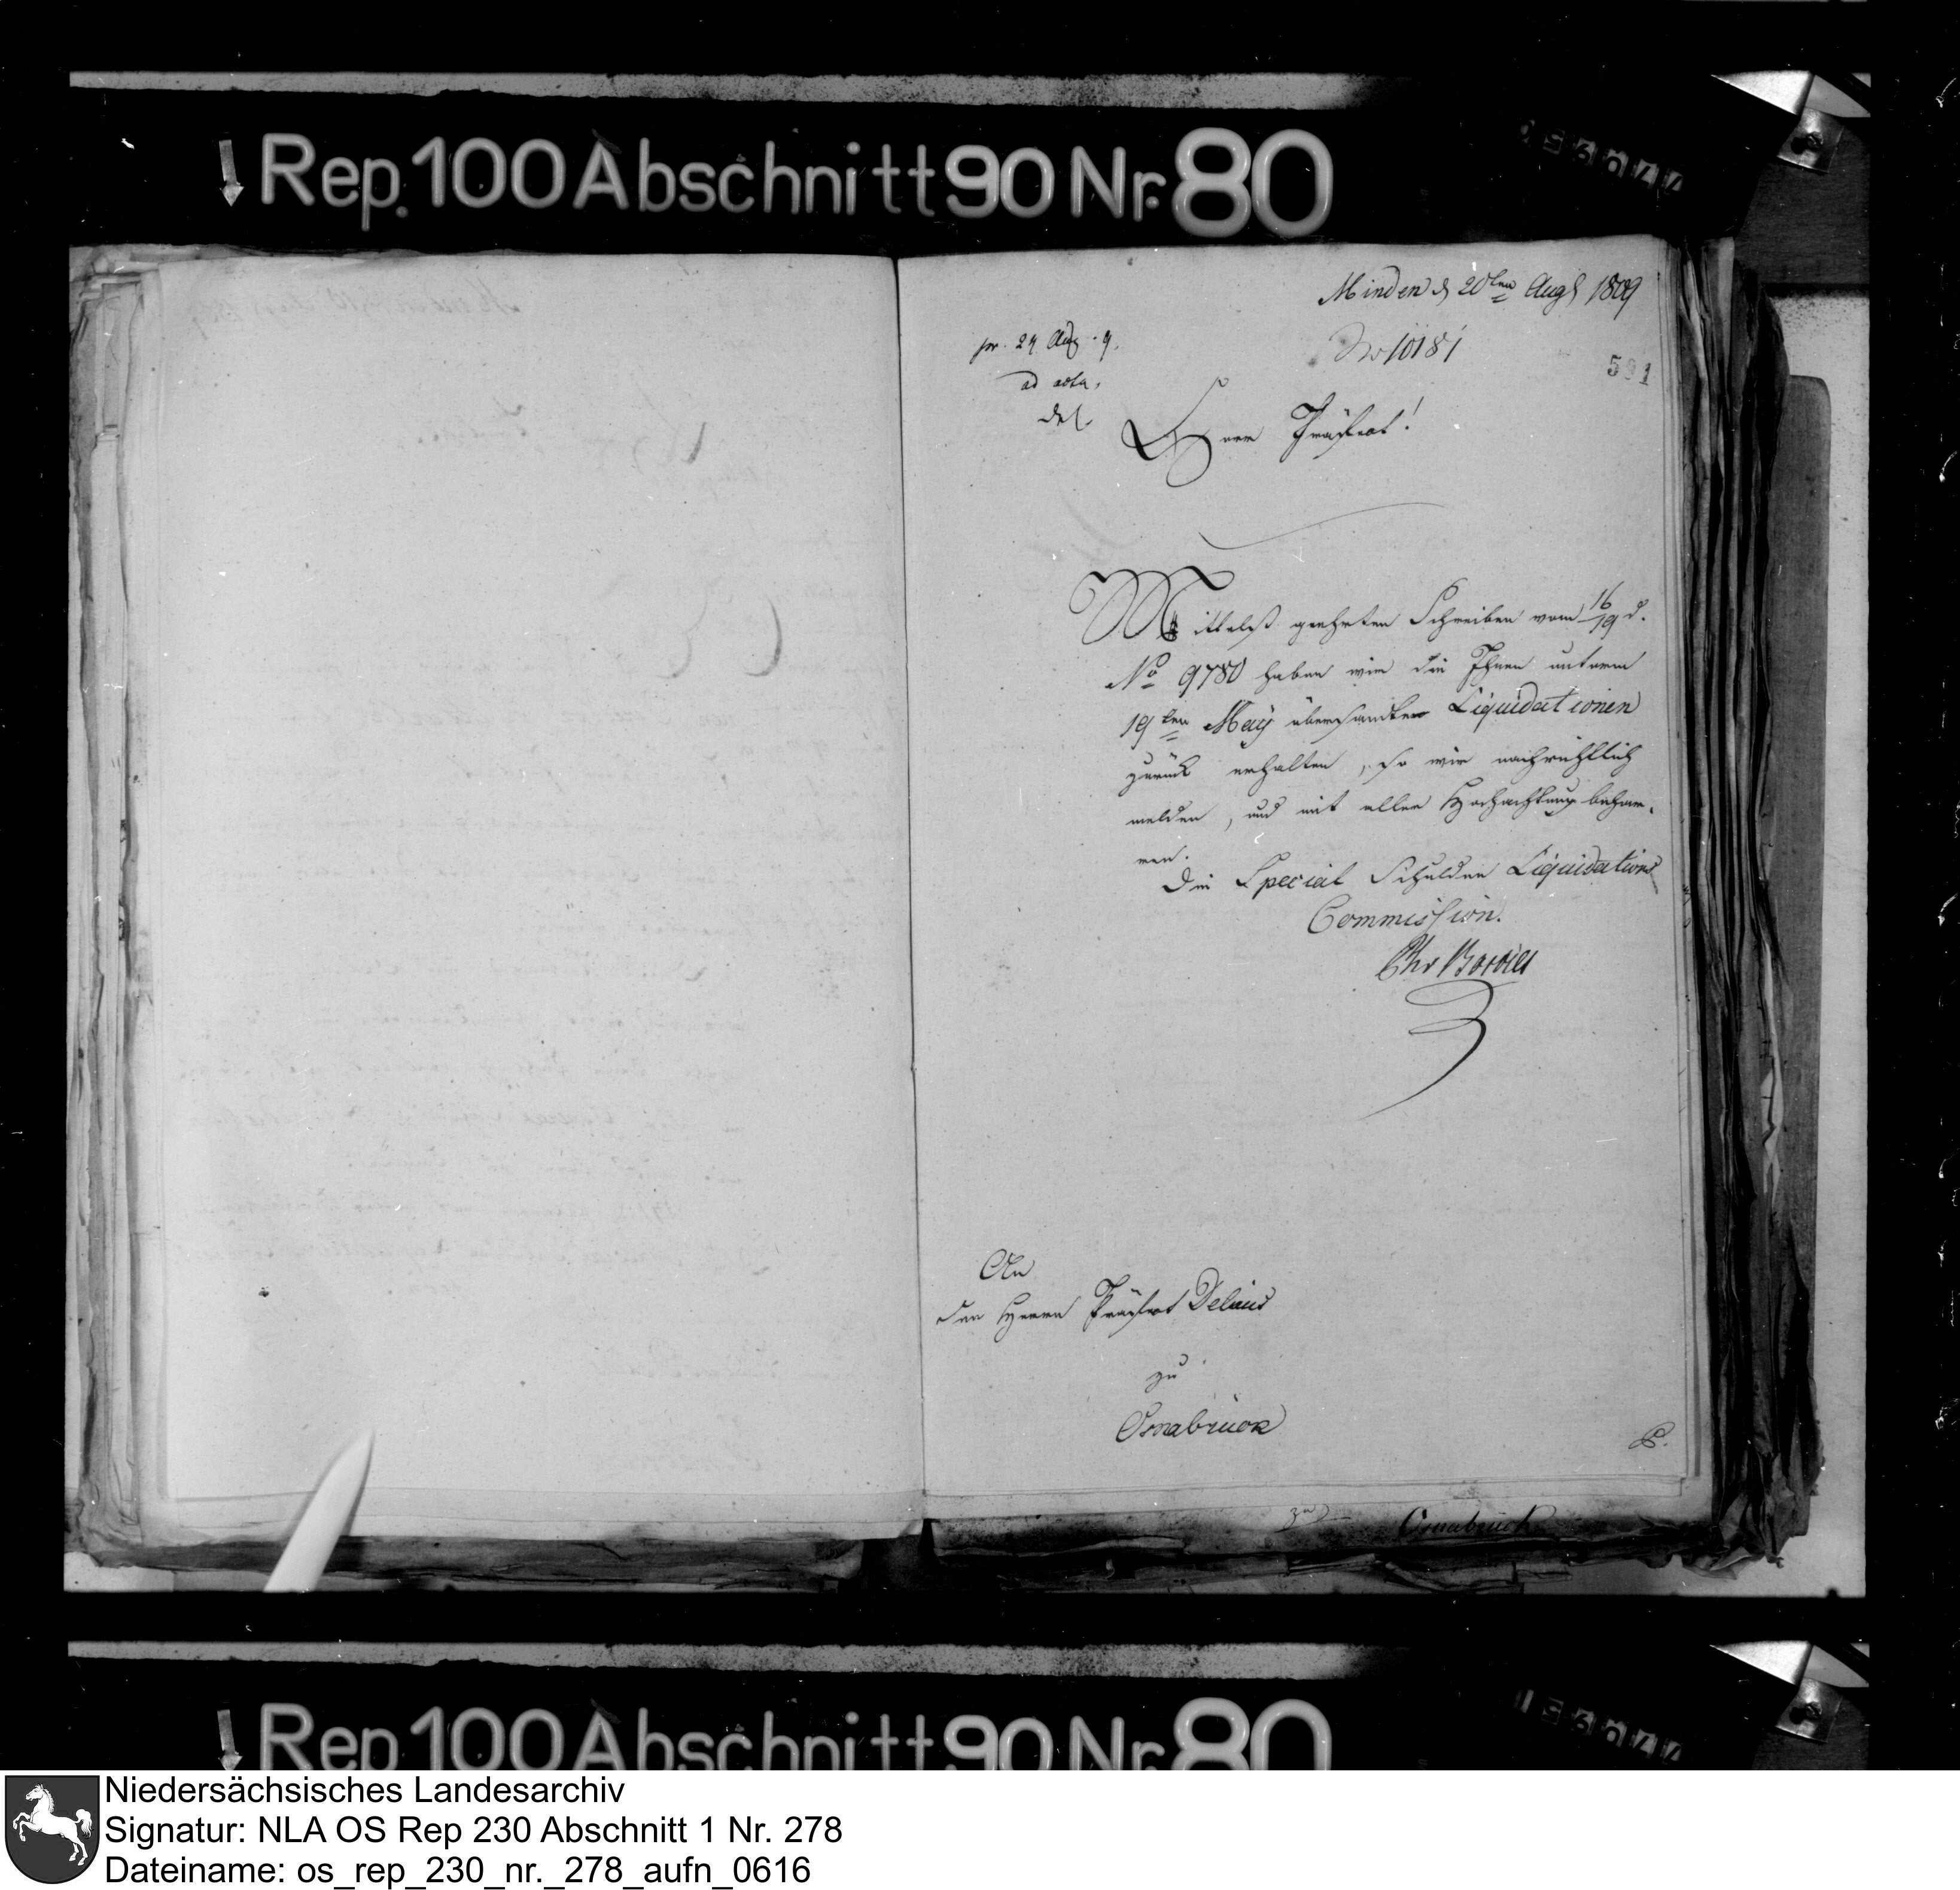 Rep. 100 Abschnitt 90 Nr. 80
Minden d 20ten Augs 1809
pr. 29 Aug. 9.
No 10181
ad acta.
Del.
Herr Präfect!
Mittelst geehrten Schreiben vom 16/19 d.
No 9780 haben wir die Ihnen unterm
19ten May übersandten Liquidationen
zurück erhalten, so wir nachrichtlich
melden, und mit aller Hochachtung behar-
ren.
Die Special Schulden Liquidations
Commission.
An
den Herrn Präfect Delius
zu
Osnabrück
zu
Osnabrück
Rep. 100 Abschnitt 90 Nr. 80
Niedersächsisches Landesarchiv
Signatur: NLA OS Rep 230 Abschnitt 1 Nr. 278
Dateiname: os_rep_230_nr._278_aufn_0616